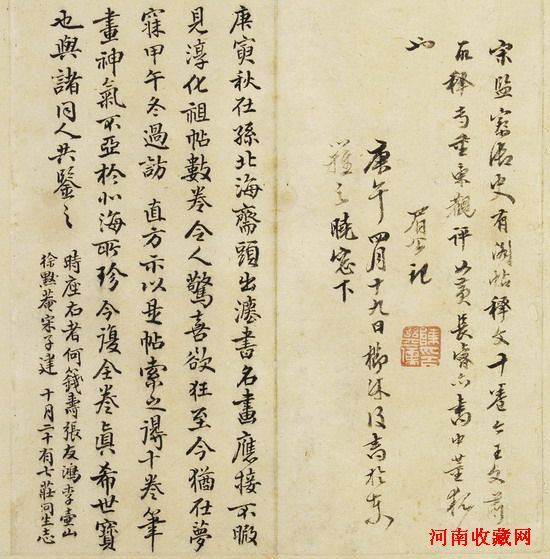 宋監察御史有閣帖釋文十卷今王文肅
所釋當重東觀評如黃長睿六書中董
眉公記
庚午四月十九日櫛沐後書於東
籬之曉窓下
庚寅秋在孫北海齋頭出灋書名畫應接不暇
見淳化祖帖數卷令人驚喜欲狂至今猶在夢
寐甲午冬過訪 直方示以是帖索之得十卷筆
畫神氣不亞於北海所珍今復全卷真希世寶
也與諸同人共鑒之
時座右者何壽張友鴻李壺山
徐默菴宋子建 十月二十有七莊冏生志
河南收藏网